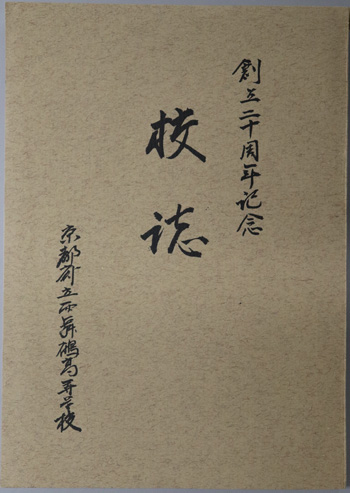 創立二十周年記念
校誌
京都府立西舞鶴高等学校